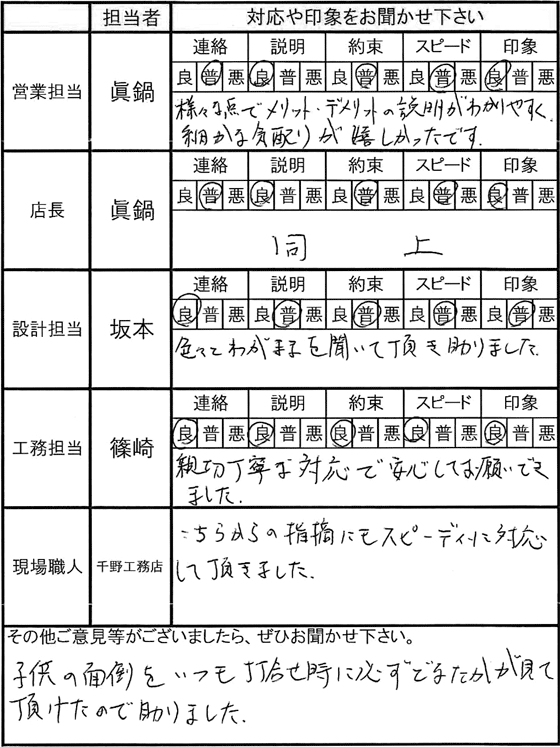 担当者 対応や印象をお聞かせ下さい
営業担当 眞鍋
連絡 説明 約束 スピード 印象
良 普 悪 良 普 悪 良 普 悪 良 普 悪 良 普 悪
様々な点でメリット・デメリットの説明がわかりやすく、
細かな気配りが嬉しかったです。
店長 眞鍋
連絡 説明 約束 スピード 印象
良 普 悪 良 普 悪 良 普 悪 良 普 悪 良 普 悪
同 上
設計担当 坂本
連絡 説明 約束 スピード 印象
良 普 悪 良 普 悪 良 普 悪 良 普 悪 良 普 悪
色々とわがままを聞いて頂き助りました。
工務担当 篠崎
連絡 説明 約束 スピード 印象
良 普 悪 良 普 悪 良 普 悪 良 普 悪 良 普 悪
親切丁寧な対応で安心してお願いでき
ました。
現場職人 千野工務店
こちらからの指摘にもスピーディに対応
して頂きました。
その他ご意見等がございましたら、ぜひお聞かせ下さい。
子供の面倒をいつも打合せ時に必ずどなたかが見て
頂けたので助りました。